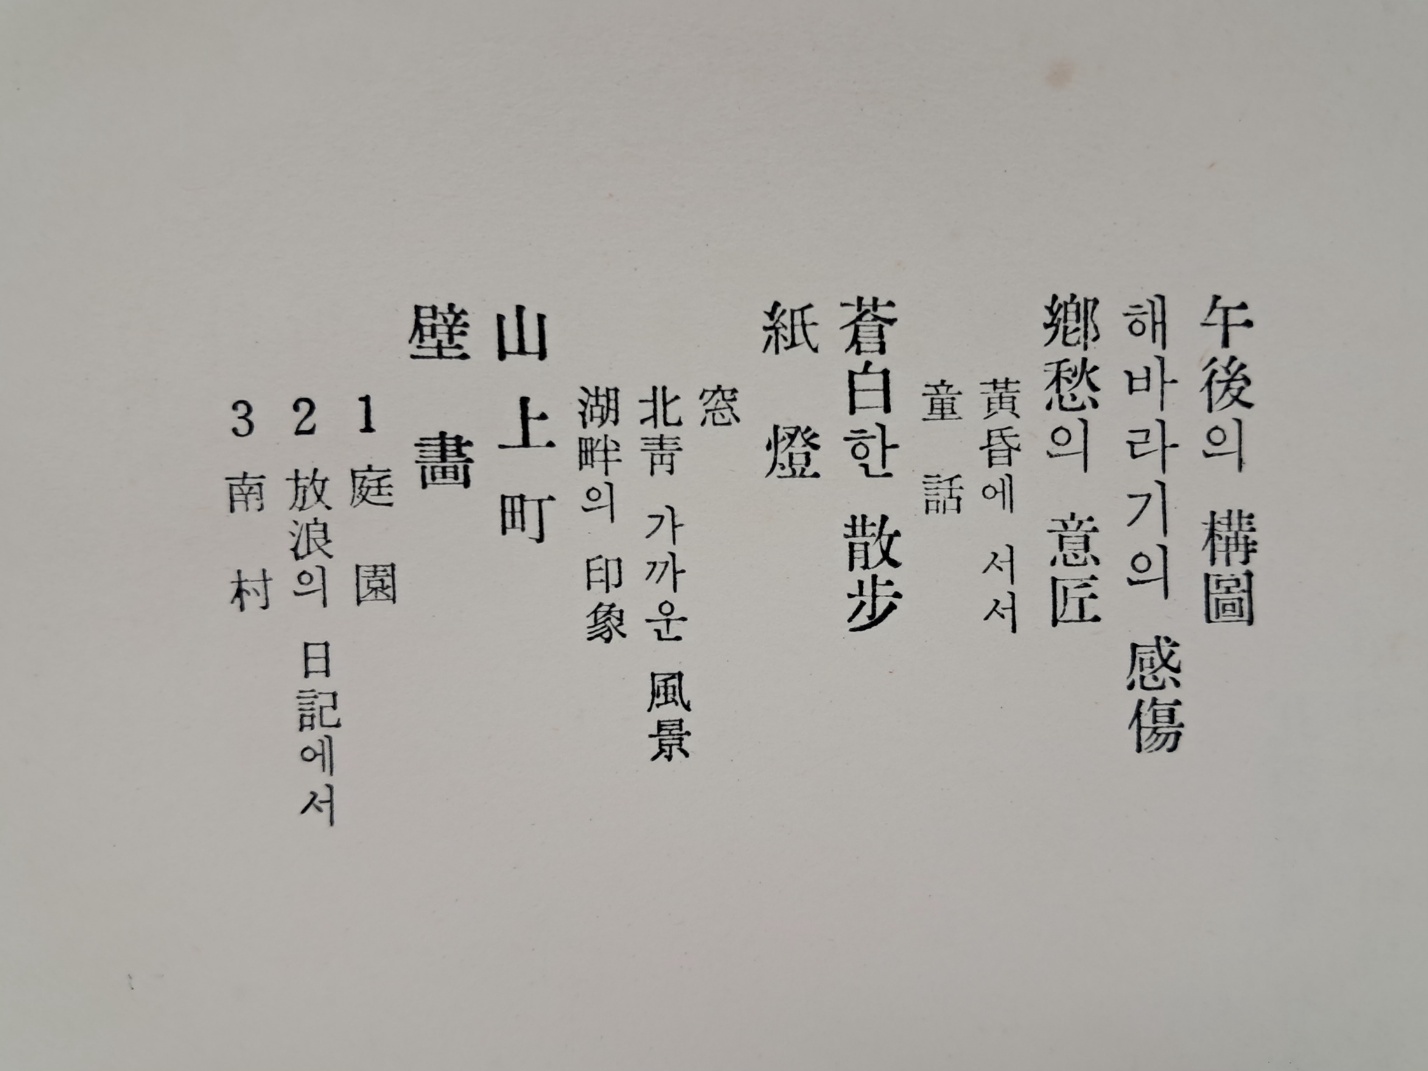 午後의 構圖
해바라기의 感傷
鄕愁의 意匠
黃昏에 서서
童話
蒼白한 散步
紙燈
窓
北靑 가까운 風景
湖畔의 印象
山上町
壁畵
1 庭園
2 放浪의 日記에서
3 南村